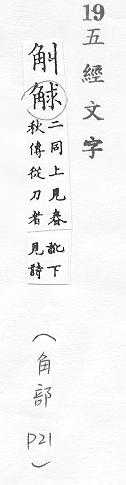 19五經文字
觓觩
二同上見春
秋傳從刀者
訛下
見詩
(角部 P21)